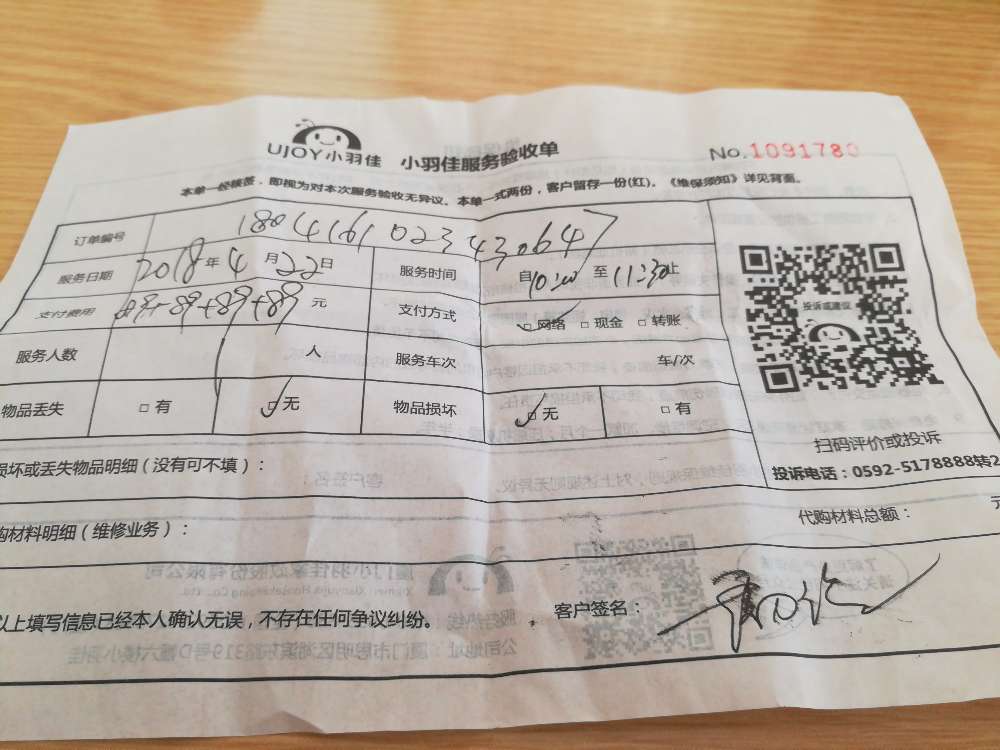 UJOY小羽佳 小羽佳服务验收单 No.1091780
本单一经核签,即视为对本次服务验收无异议。本单一式两份,客户留存一份(红)。《维保须知》详见背面。
订单编号 1804161023430647
服务日期 2018年4月22日 服务时间 自10:00至11:30止
支付费用 89+89+89+89元 支付方式 ☑网络 □现金 □转账
服务人数 1人 服务车次 车/次
物品丢失 □有 ☑无 物品损坏 ☑无 □有
投诉或建议
扫码评价或投诉
投诉电话:0592-5178888转2
损坏或丢失物品明细(没有可不填):
购材料明细(维修业务): 代购材料总额: 元
以上填写信息已经本人确认无误,不存在任何争议纠纷。 客户签名: